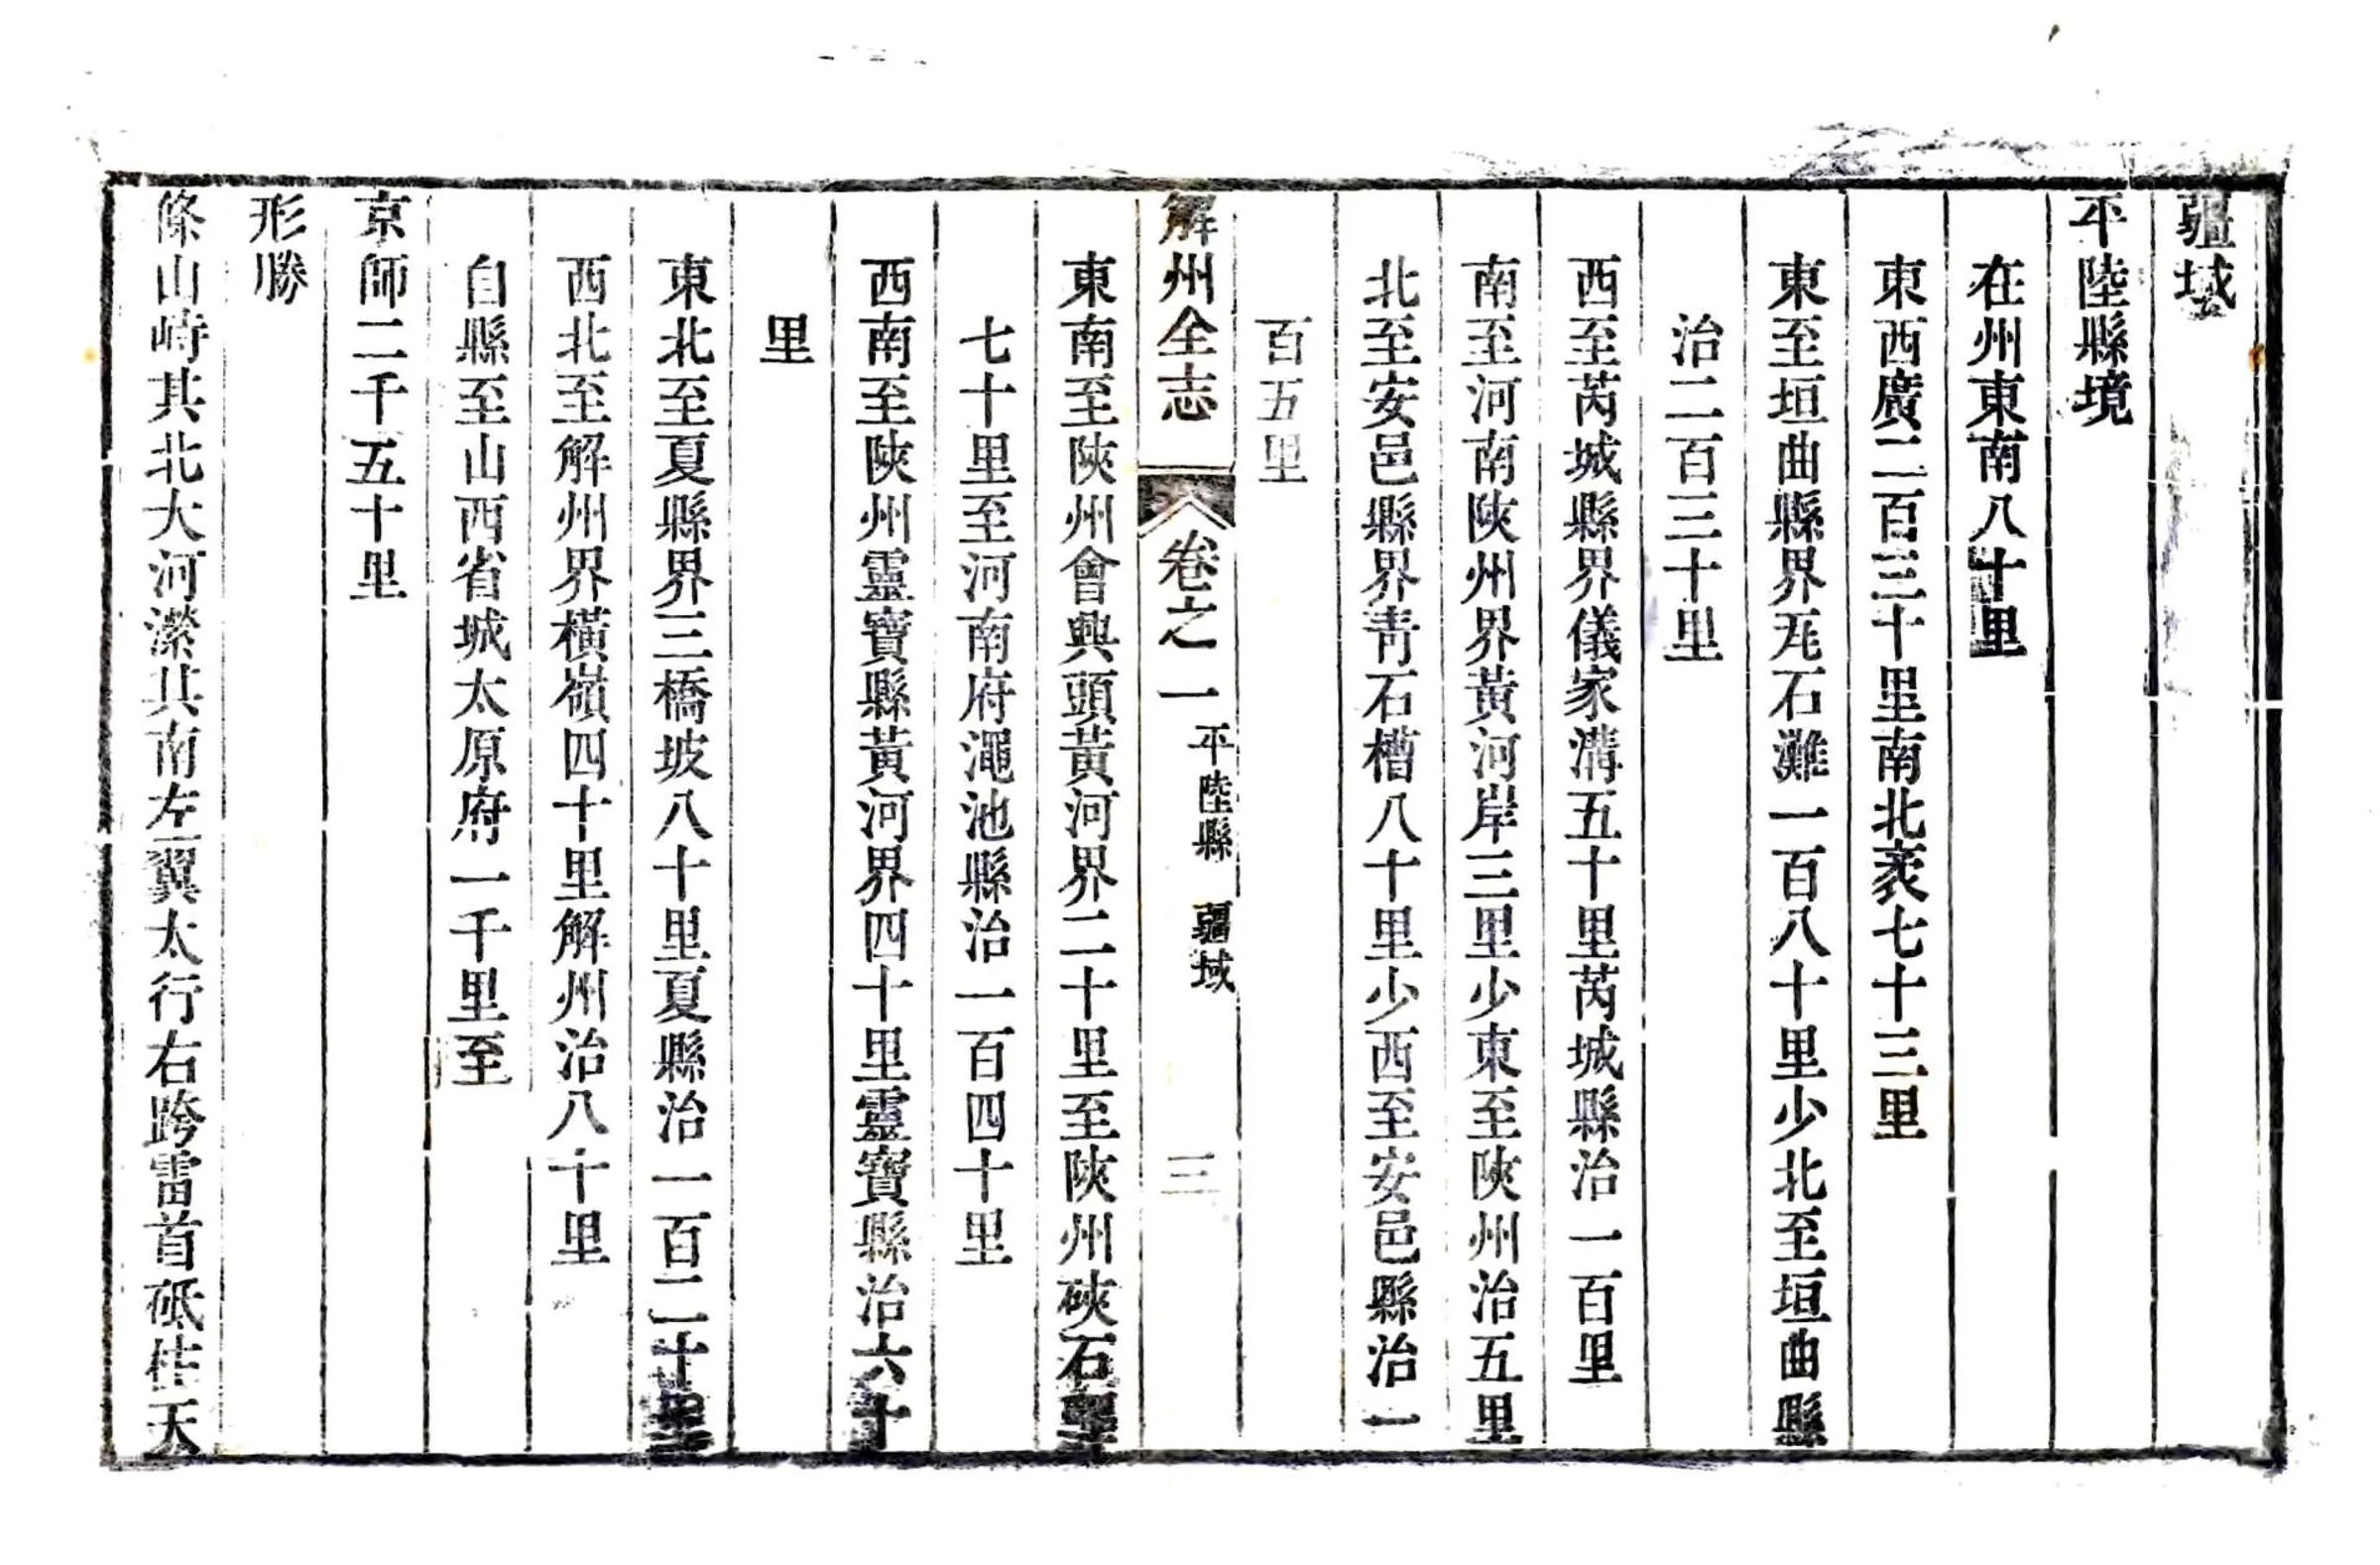 疆域
平陸縣境
在州東南八十里
東西廣二百三十里南北袤七十三里
東至垣曲縣界兎石灘一百八十里少北至垣曲縣
治二百三十里
西至芮城縣界儀家溝五十里芮城縣治一百里
南至河南陝州界黃河岸三里少東至陝州治五里
北至安邑縣界靑石槽八十里少西至安邑縣治一
百五里
解州全志 卷之一 平陸縣 疆域 三
東南至陝州會興頭黃河界二十里至陝州硤石
七十里至河南府澠池縣治一百四十里
西南至陝州靈寶縣黃河界四十里靈寶縣治六十
里
東北至夏縣界三橋坡八十里夏縣治一百二十里
西北至解州界橫嶺四十里解州治八十里
自縣至山西省城太原府一千里至
京師二千五十里
形勝
條山峙其北大河瀠其南左翼太行右跨雷首砥柱天